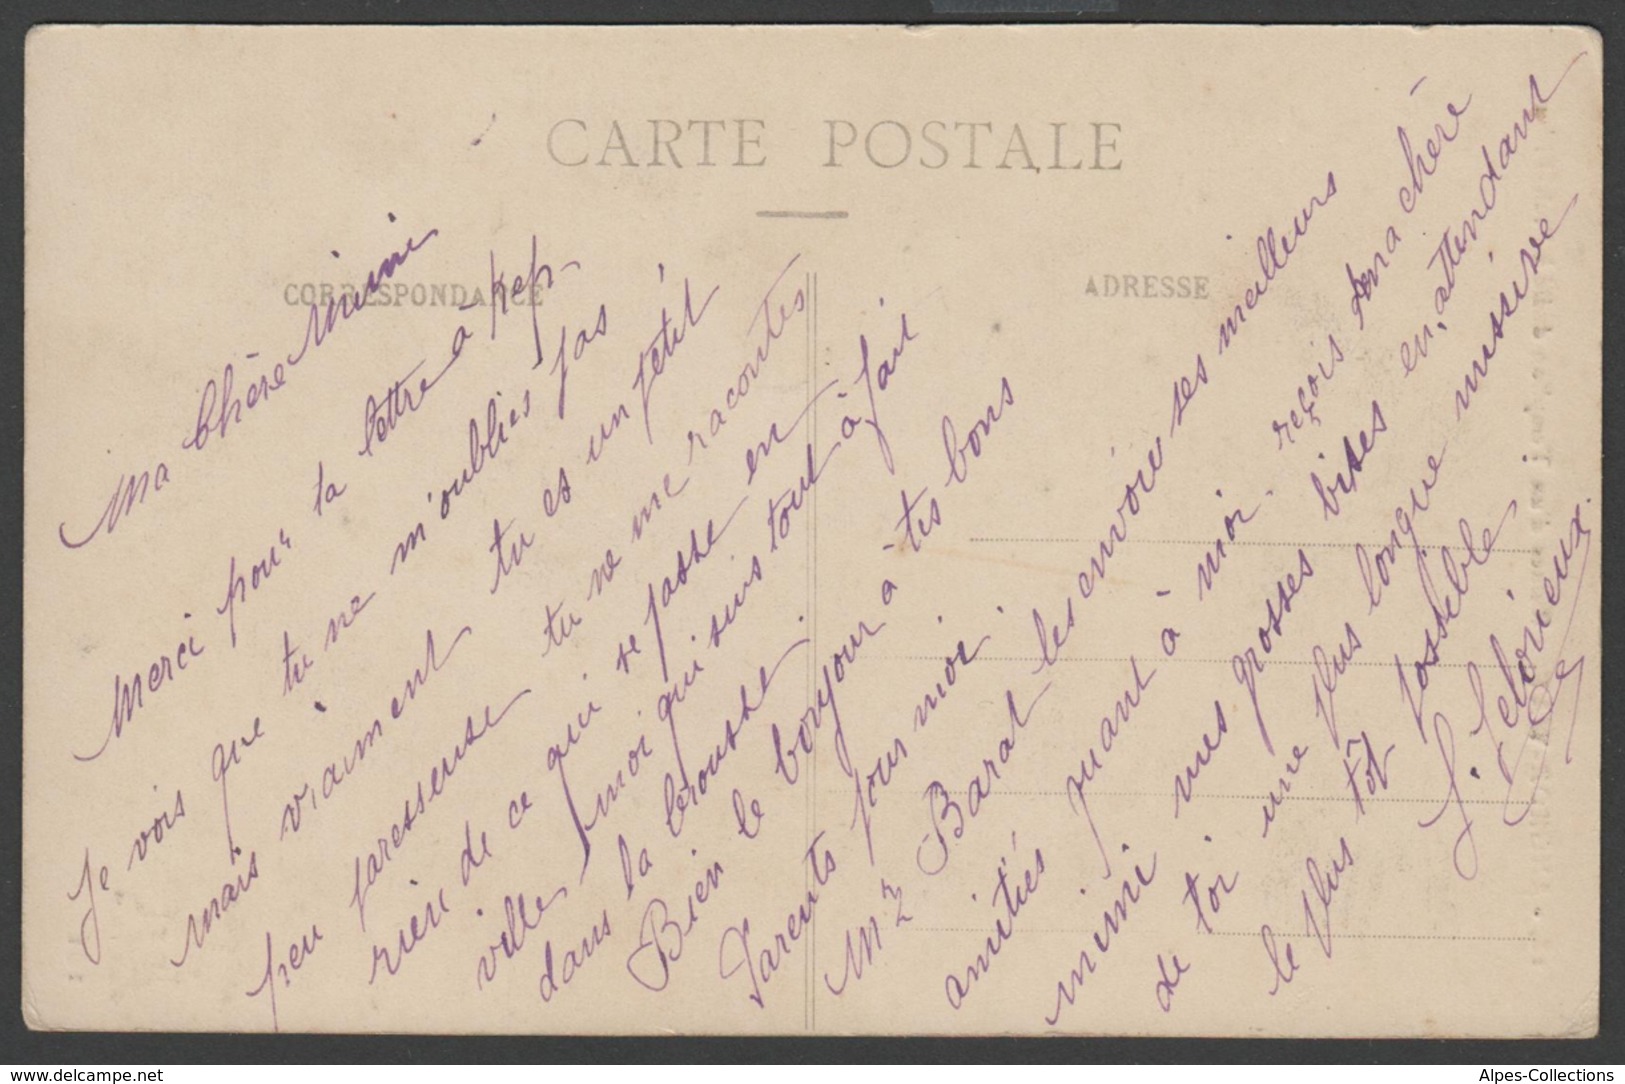 CARTE POSTALE
CORRESPONDANCE
ADRESSE
Ma Chère Mimi
Merci pour ta lettre à
Je vois que tu ne m'oublies pas
mais vraiment tu es un petit
peu paresseuse tu ne me racontes
rien de ce qui se passe en
ville, moi qui suis tout à fait
dans la brousse.
Bien le bonjour à tes bons
Parents pour moi.
Barat les envoie ses meilleurs
amitiés quant à moi reçois ma chère
mimi mes grosses bises en attendant
de toi une plus longue missive
le plus tôt possible
www.delcampe.net
Alpes-Collections